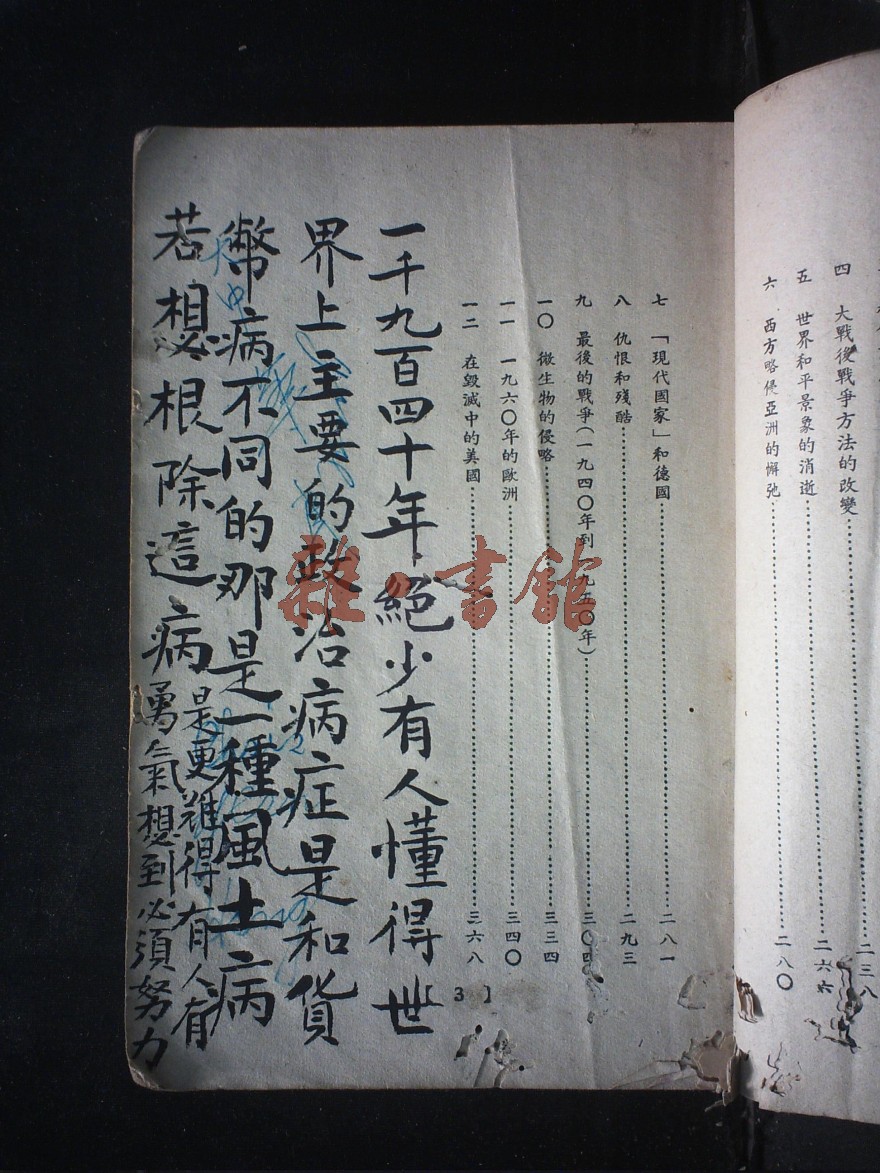 四　大戰後戰爭方法的改變……二三八
五　世界和平景象的消逝……二六六
六　西方略侵亞洲的懈弛……二八〇
七　「現代國家」和德國……二八一
八　仇恨和殘酷……二九三
九　最後的戰爭(一九四〇年到一九五〇年)……三〇四
一〇　微生物的侵略……三三四
一一　一九六〇年的歐洲……三四〇
一二　在毀滅中的美國……三六八
3】
一千九百四十年絕少有人懂得世
界上主要的政治病症是和貨
幣病不同的那是一種風土病
若想根除這病
是更難得有人有
勇氣想到必須努力
雜·書館